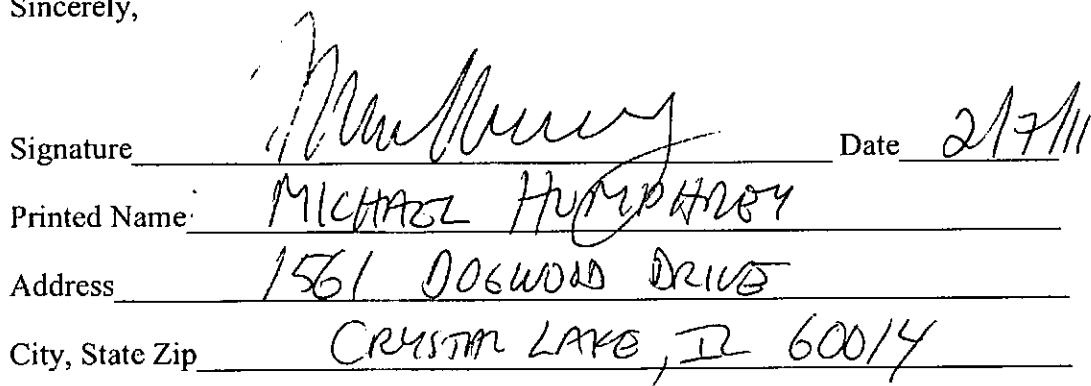 Sincerely,
Signature Date 2/7/11
Printed Name MICHAEL HUMPHREY
Address 1561 DOGWOOD DRIVE
City, State Zip CRYSTAL LAKE, IL 60014